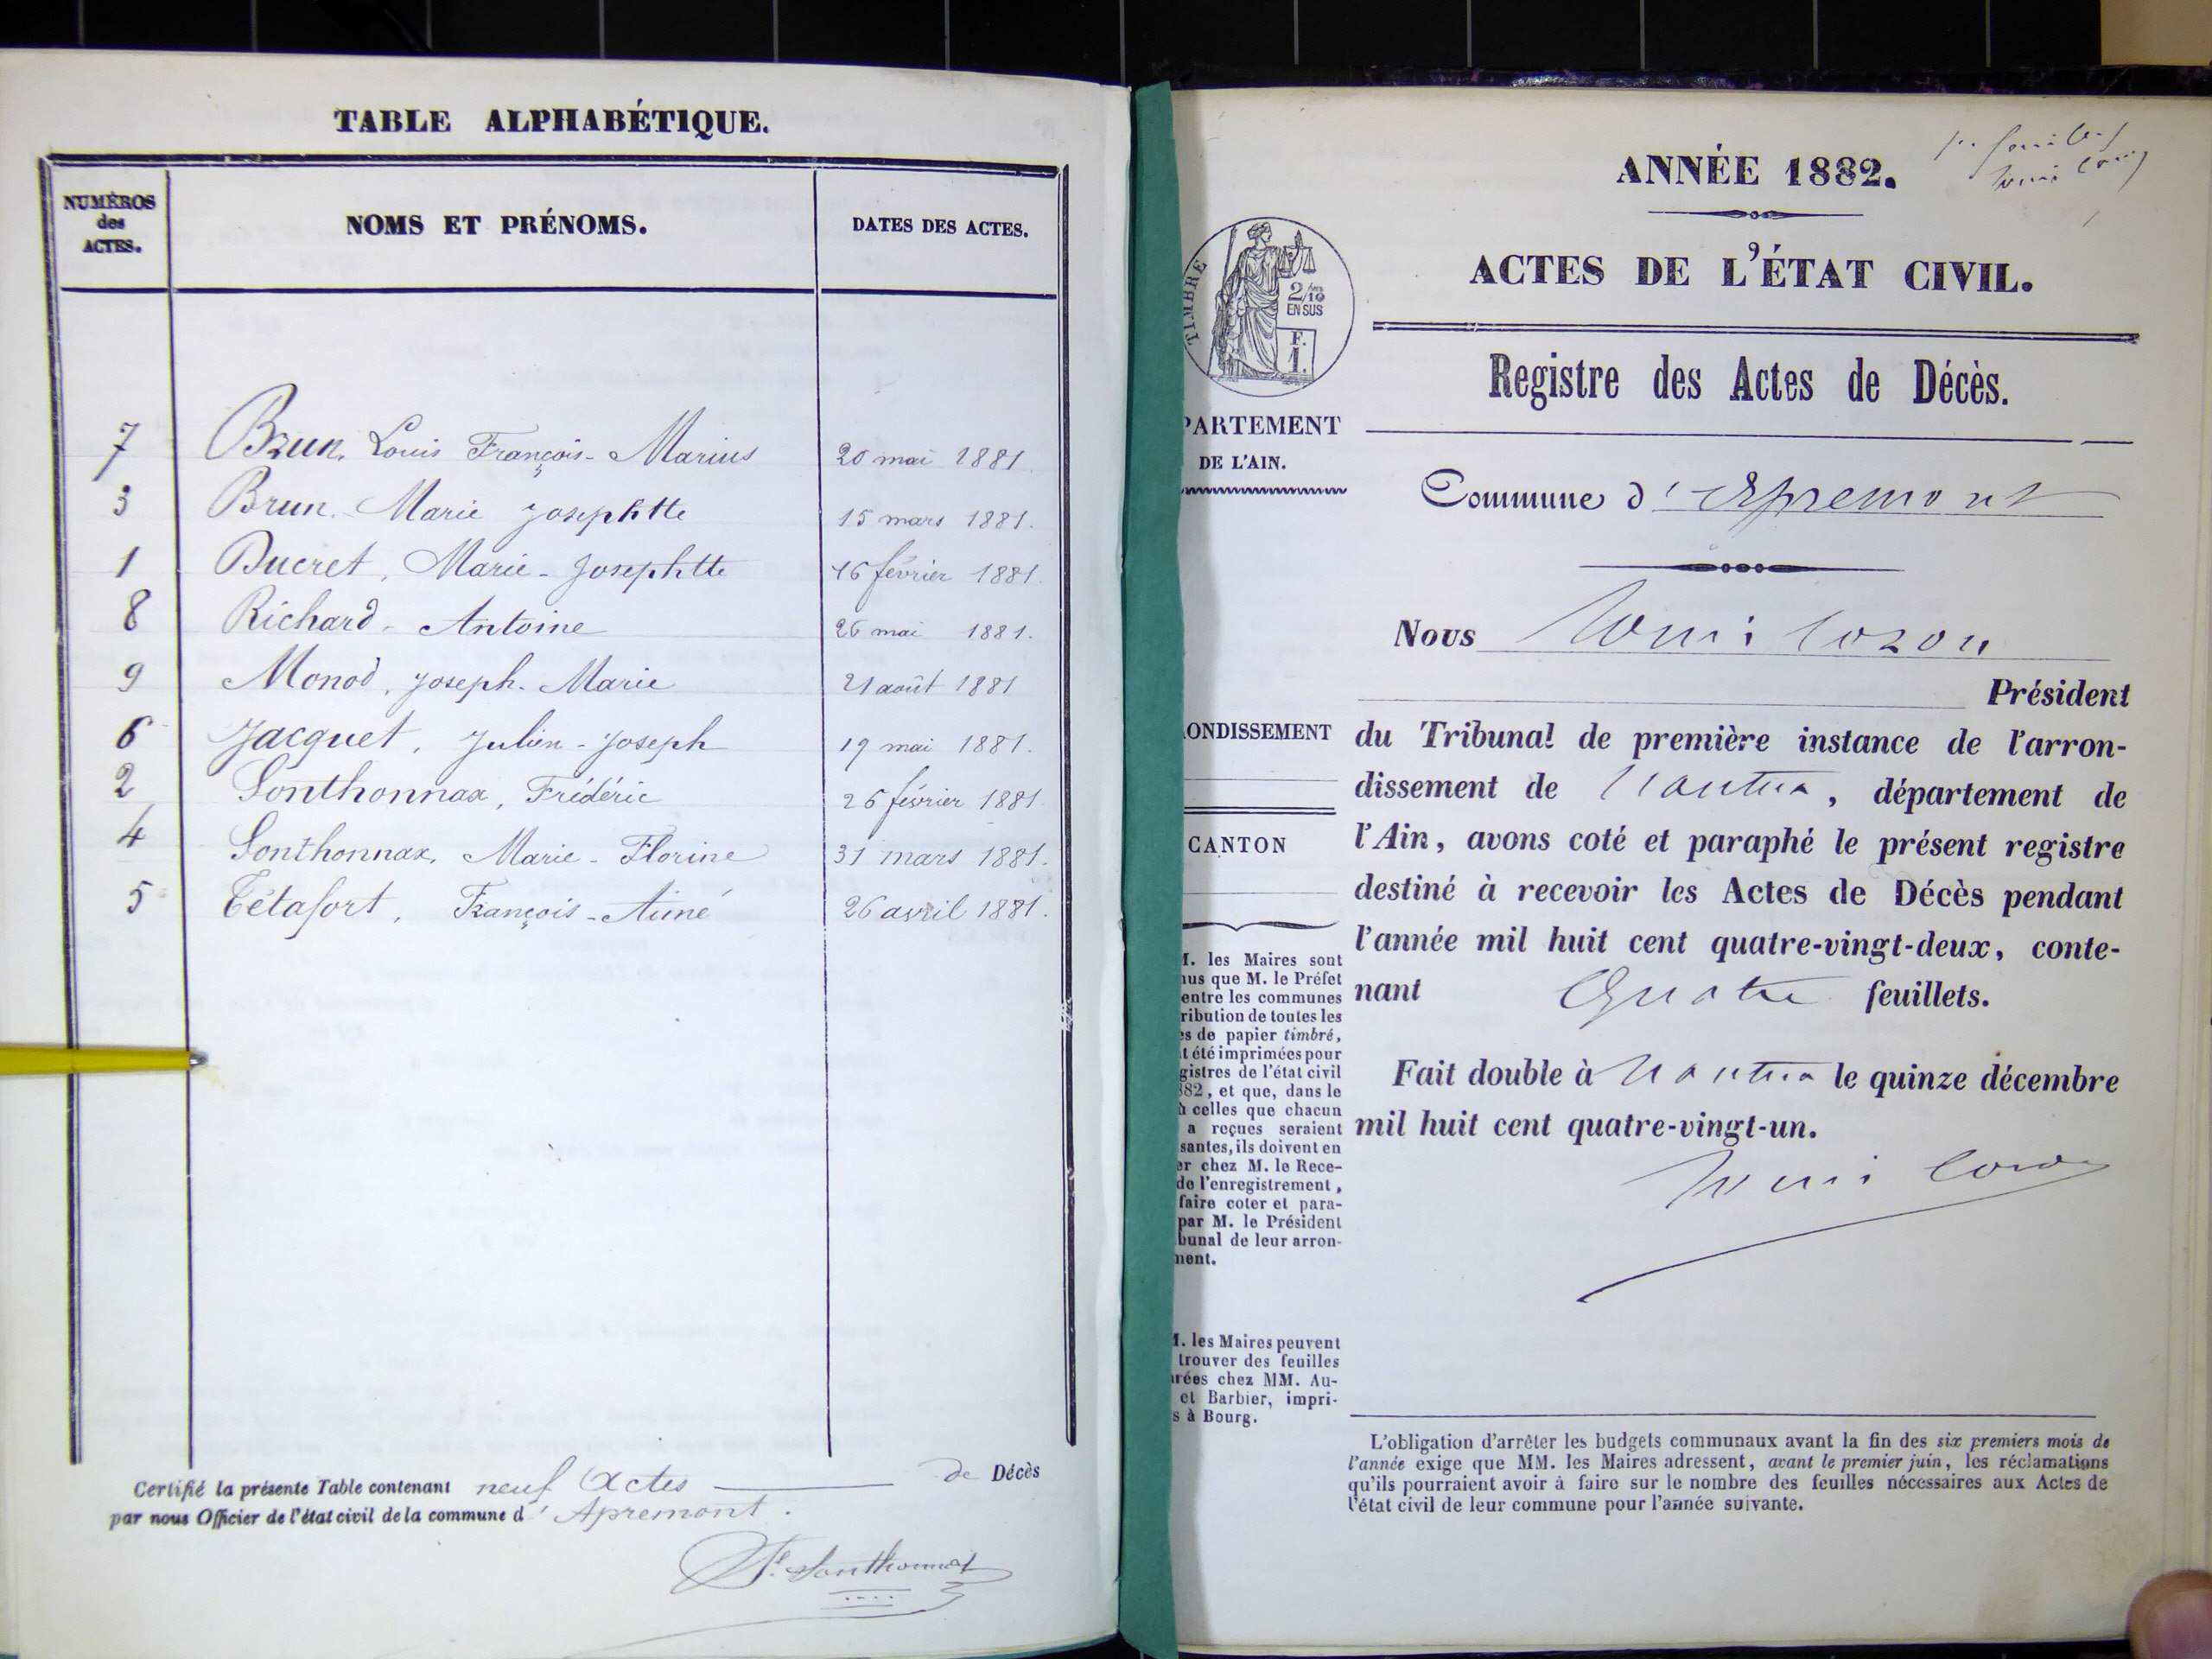 TABLE ALPHABÉTIQUE.
NUMÉROS
des
ACTES.
NOMS ET PRÉNOMS.
DATES DES ACTES.
7 Brun, Louis François-Marius 20 mai 1881
3 Brun, Marie Josephtte 15 mars 1881.
1 Ducret, Marie-Josephtte 16 février 1881.
8 Richard-Antoine 26 mai 1881.
9 Monod, Joseph-Marie 21 août 1881
6 Jacquet, Julien-Joseph 19 mai 1881.
2 Sonthonnax, Frédéric 26 février 1881
4 Sonthonnax, Marie-Florine 31 mars 1881.
5 Tétafort, François-Aimé 26 avril 1881.
Certifié la présente Table contenant neuf Actes de Décès
par nous Officier de l'état civil de la commune d'Apremont.
Sonthonnax
ANNÉE 1882.
ACTES DE L'ÉTAT CIVIL.
TIMBRE
2/10
EN SUS
F.
1.
Registre des Actes de Décès.
PARTEMENT
DE L'AIN.
Commune d'Apremont
Nous
Président
ONDISSEMENT
du Tribunal de première instance de l'arron-
dissement de Nantua, département de
CANTON
l'Ain, avons coté et paraphé le présent registre
destiné à recevoir les Actes de Décès pendant
l'année mil huit cent quatre-vingt-deux, conte-
nant Quatre feuillets.
Fait double à Nantua le quinze décembre
mil huit cent quatre-vingt-un.
M. les Maires sont
nus que M. le Préfet
entre les communes
ribution de toutes les
es de papier timbré,
t été imprimées pour
gistres de l'état civil
882, et que, dans le
à celles que chacun
a reçues seraient
santes, ils doivent en
er chez M. le Rece-
de l'enregistrement,
faire coter et para-
par M. le Président
bunal de leur arron-
ment.
M. les Maires peuvent
trouver des feuilles
rées chez MM. Au-
et Barbier, impri-
s à Bourg.
L'obligation d'arrêter les budgets communaux avant la fin des six premiers mois de
l'année exige que MM. les Maires adressent, avant le premier juin, les réclamations
qu'ils pourraient avoir à faire sur le nombre des feuilles nécessaires aux Actes de
l'état civil de leur commune pour l'année suivante.